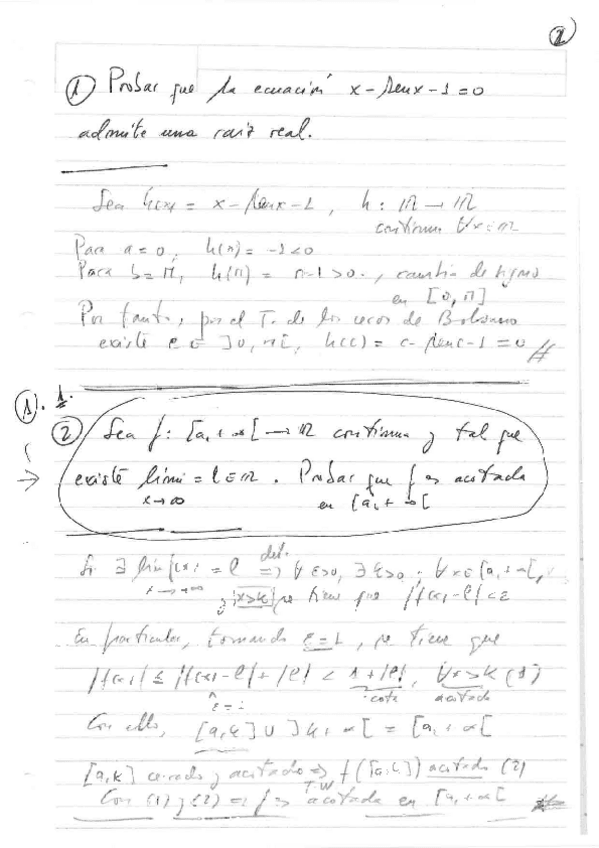 2
① Probar que la ecuación x - sen x - 1 = 0
admite una raiz real.
Sea h(x) = x - sen x - 1, h: ℝ → ℝ
continua ∀x∈ℝ
Para a = 0, h(0) = -1 < 0
Para b = π, h(π) = π - 1 > 0, cambia de signo
en [0, π]
Por tanto, por el T. de los ceros de Bolzano
existe c ∈ ]0, π[, h(c) = c - sen c - 1 = 0 //
①. 1.
② Sea f: [a, +∞[ → ℝ continua y tal que
existe lim = l ∈ ℝ. Probar que f es acotada
x→∞ en [a, +∞[
Si ∃ lim f(x) = l ⇒ ∀ε>0, ∃ k>0 : ∀x∈[a, +∞[,
x→+∞ def.
y x>k se tiene que |f(x) - l| < ε
En particular, tomando ε = 1, se tiene que
|f(x)| ≤ |f(x) - l| + |l| < 1 + |l|, ∀x>k (1)
ε = 1 cota acotada
Con ello, [a, k] ∪ ]k, +∞[ = [a, +∞[
[a, k] cerrado y acotado ⇒ f([a, k]) acotado (2)
T-W
Con (1) y (2) ⇒ f es acotada en [a, +∞[